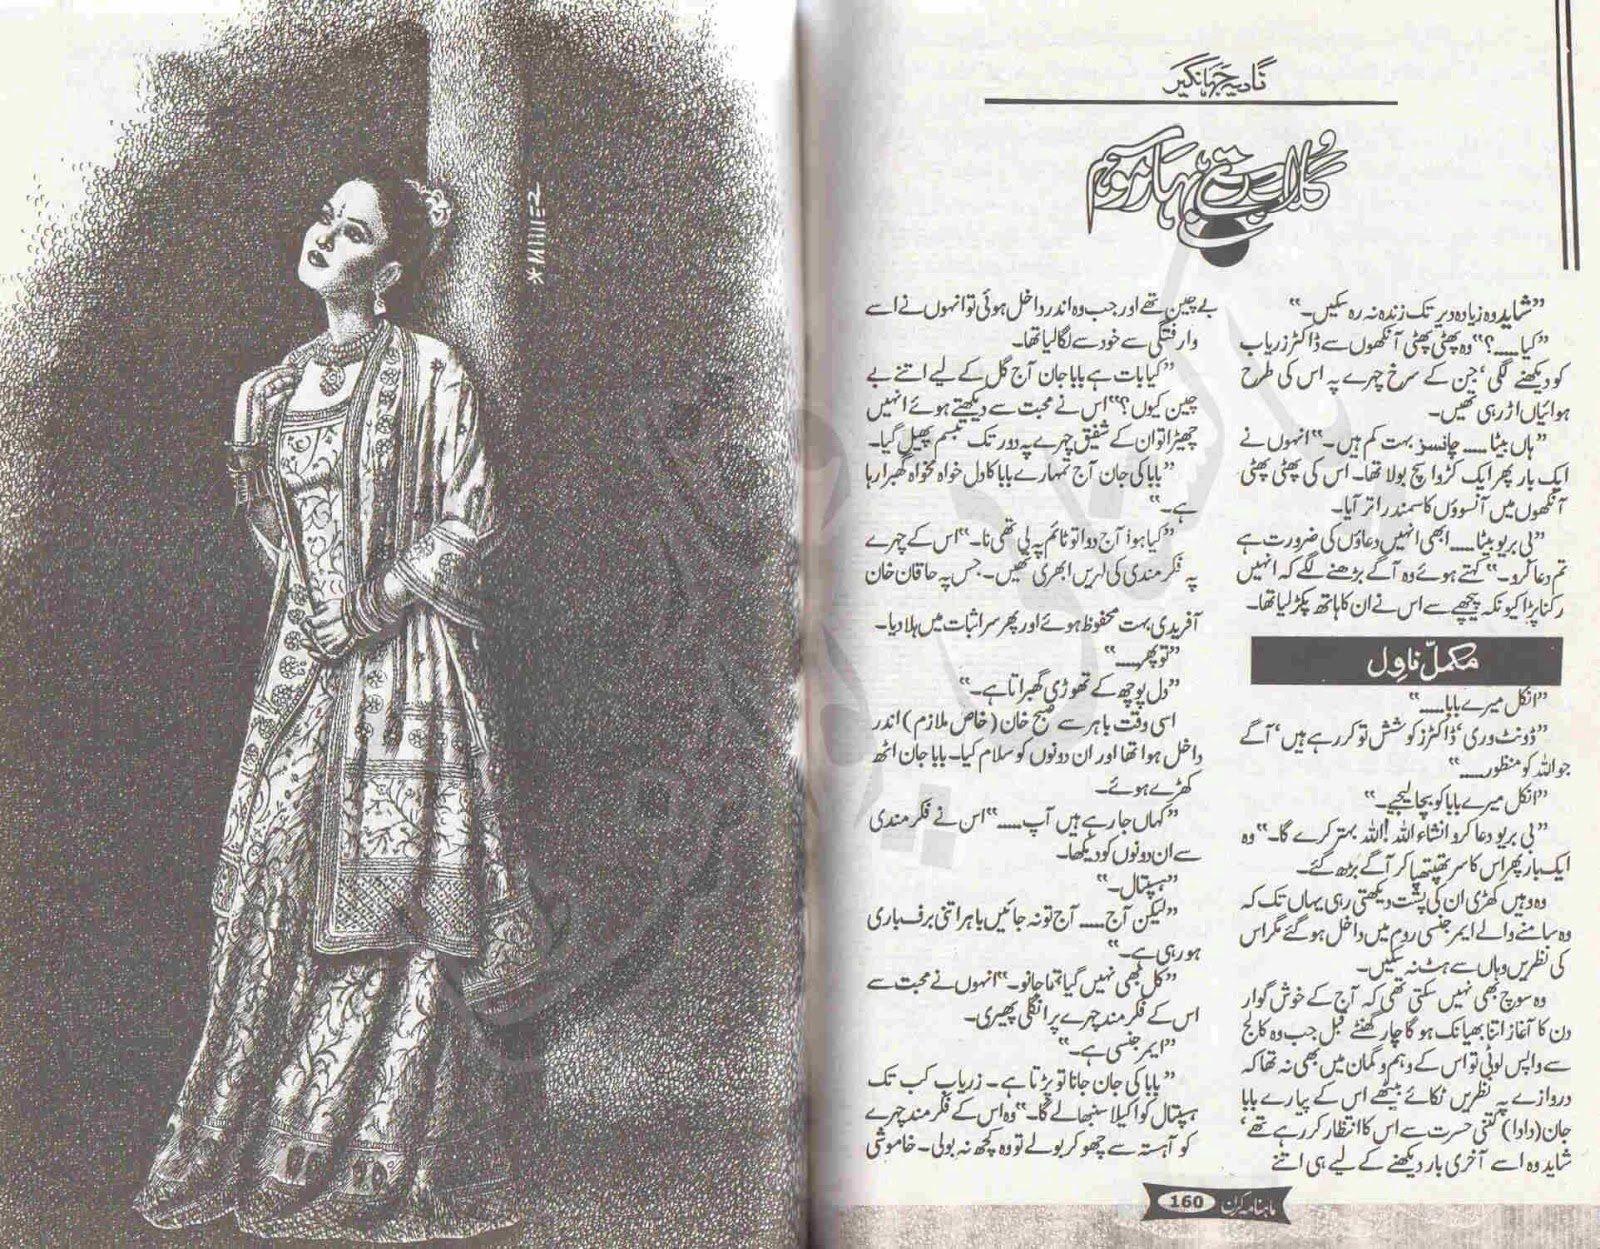 نادیہ جہانگیر
گلاب رتے بہار موسم
”شاید وہ زیادہ دیر تک زندہ نہ رہ سکیں۔“
”کیا......؟“ وہ پھٹی پھٹی آنکھوں سے ڈاکٹر زریاب
کو دیکھنے لگی‘ جن کے سرخ چہرے پہ اس کی طرح
ہوائیاں اڑ رہی تھیں۔
”ہاں بیٹا...... چانسز بہت کم ہیں۔“ انہوں نے
ایک بار پھر ایک کڑوا سچ بولا تھا۔ اس کی پھٹی پھٹی
آنکھوں میں آنسوؤں کا سمندر اتر آیا۔
”بی بریو بیٹا...... ابھی انہیں دعاؤں کی ضرورت ہے
تم دعا کرو۔“ کہتے ہوئے وہ آگے بڑھنے لگے کہ انہیں
رکنا پڑا کیونکہ پیچھے سے اس نے ان کا ہاتھ پکڑ لیا تھا۔
مکمل ناول
”انکل میرے بابا......“
”ڈونٹ وری‘ ڈاکٹرز کوشش تو کر رہے ہیں‘ آگے
جو اللہ کو منظور......“
”انکل میرے بابا کو بچا لیجیے۔“
”بی بریو دعا کرو انشاء اللہ! اللہ بہتر کرے گا۔“ وہ
ایک بار پھر اس کا سر تھپتھپا کر آگے بڑھ گئے۔
وہ وہیں کھڑی ان کی پشت دیکھتی رہی یہاں تک کہ
وہ سامنے والے ایمرجنسی روم میں داخل ہو گئے مگر اس
کی نظریں وہاں سے ہٹ نہ سکیں۔
وہ سوچ بھی نہیں سکتی تھی کہ آج کے خوش گوار
دن کا آغاز اتنا بھیانک ہو گا چار گھنٹے قبل جب وہ کالج
سے واپس لوٹی تو اس کے وہم و گمان میں بھی نہ تھا کہ
دروازے پہ نظریں ٹکائے بیٹھے اس کے پیارے بابا
جان (دادا) کتنی حسرت سے اس کا انتظار کر رہے تھے‘
شاید وہ اسے آخری بار دیکھنے کے لیے ہی اتنے
بے چین تھے اور جب وہ اندر داخل ہوئی تو انہوں نے اسے
وارفتگی سے خود سے لگا لیا تھا۔
”کیا بات ہے بابا جان آج گل کے لیے اتنے بے
چین کیوں؟“ اس نے محبت سے دیکھتے ہوئے انہیں
چھیڑا تو ان کے شفیق چہرے پہ دور تک تبسم پھیل گیا۔
”بابا کی جان آج تمہارے بابا کا دل خواہ مخواہ گھبرا رہا
ہے۔“
”کیا ہوا آج دوا تو ٹائم پہ لی تھی نا۔“ اس کے چہرے
پہ فکر مندی کی لہریں ابھری تھیں۔ جس پہ حاقان خان
آفریدی بہت محفوظ ہوئے اور پھر سر اثبات میں ہلا دیا۔
”تو پھر......“
”دل پوچھ کے تھوڑی گھبراتا ہے۔“
اسی وقت باہر سے صبح خان (خاص ملازم) اندر
داخل ہوا تھا اور ان دونوں کو سلام کیا۔ بابا جان اٹھ
کھڑے ہوئے۔
”کہاں جا رہے ہیں آپ......“ اس نے فکر مندی
سے ان دونوں کو دیکھا۔
”ہسپتال۔“
”لیکن آج...... آج تو نہ جائیں باہر اتنی برف باری
ہو رہی ہے۔“
”کل بھی نہیں گیا تھا جانو۔“ انہوں نے محبت سے
اس کے فکر مند چہرے پر انگلی پھیری۔
”ایمرجنسی ہے۔“
”بابا کی جان جانا تو پڑتا ہے۔ زریاب کب تک
ہسپتال کو اکیلا سنبھالے گا۔“ وہ اس کے فکر مند چہرے
کو آہستہ سے چھو کر بولے تو وہ کچھ نہ بولی۔ خاموشی
ماہنامہ کرن 160